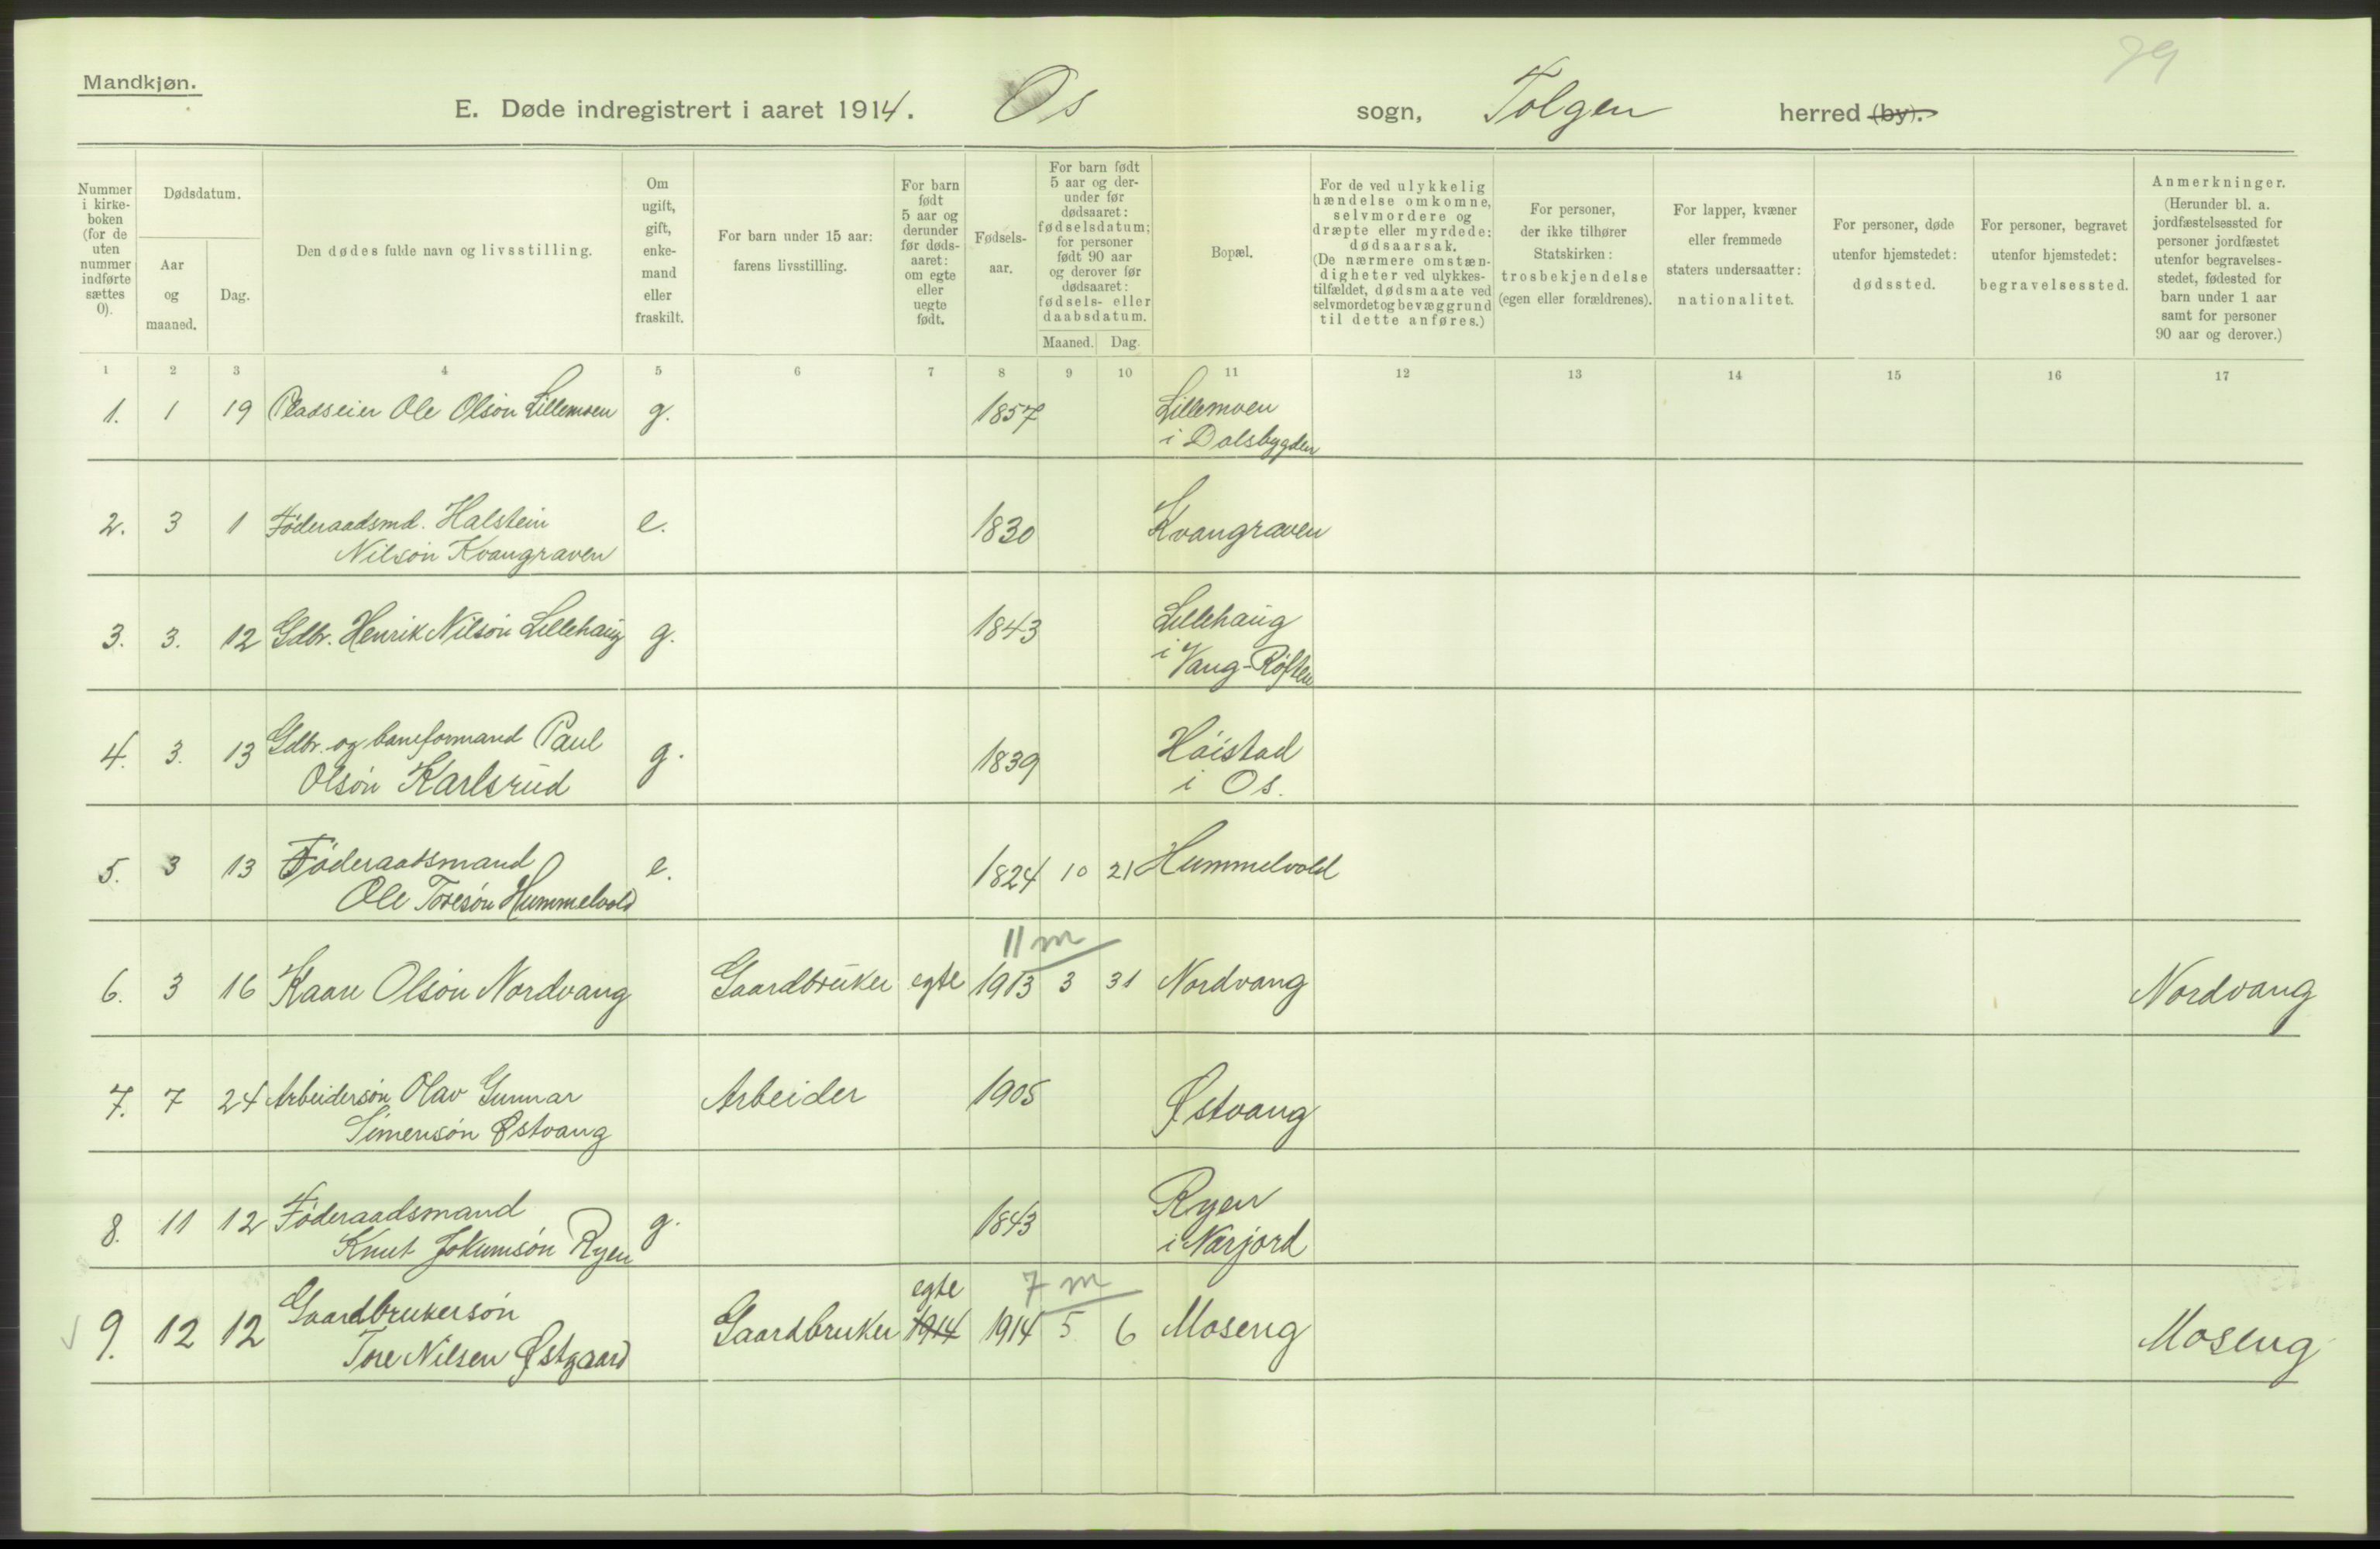 29
Mandkjøn.
E. Døde indregistrert i aaret 1914. Os sogn, Tolgen herred (by).
Nummer i kirke-boken (for de uten nummer indførte sættes 0).
Dødsdatum.
Aar og maaned.
Dag.
Den dødes fulde navn og livsstilling.
Om ugift, gift, enke-mand eller fraskilt.
For barn under 15 aar: farens livsstilling.
For barn født 5 aar og derunder før døds-aaret: om egte eller uegte født.
Fødsels-aar.
For barn født 5 aar og der-under før dødsaaret: fødselsdatum; for personer født 90 aar og derover før dødsaaret: fødsels- eller daabsdatum.
Maaned. Dag.
Bopæl.
For de ved ulykkelig hændelse omkomne, selvmordere og dræpte eller myrdede: dødsaarsak. (De nærmere omstæn-digheter ved ulykkes-tilfældet, dødsmaate ved selvmordet og bevæggrund til dette anføres.)
For personer, der ikke tilhører Statskirken: trosbekjendelse (egen eller forældrenes).
For lapper, kvæner eller fremmede staters undersaatter: nationalitet.
For personer, døde utenfor hjemstedet: dødssted.
For personer, begravet utenfor hjemstedet: begravelsessted.
Anmerkninger. (Herunder bl. a. jordfæstelsessted for personer jordfæstet utenfor begravelses-stedet, fødested for barn under 1 aar samt for personer 90 aar og derover.)
1 2 3 4 5 6 7 8 9 10 11 12 13 14 15 16 17
1. 1 19 Pladseier Ole Olsön Lillemoen g. 1857 Lillemoen
i Dalsbygden
2. 3 1 Föderaadsmd. Halstein e. 1830 Kvangraven
Nilsön Kvangraven
3. 3. 12 Gdbr. Henrik Nilsön Lillehaug g. 1843 Lillehaug
i Vang-Røften
4. 3. 13 Gdbr. og baneformand Paul g. 1839 Höistad
Olsön Karlsrud i Os.
5. 3 13 Föderaadsmand e. 1824 10 21 Hummelvold
Ole Toresön Hummelvold
11 m
6. 3 16 Kaare Olsön Nordvang Gaardbruker egte 1913 3 31 Nordvang Nordvang
7. 7 24 Arbeidersön Olav Gunnar Arbeider 1905 Østvang
Simensön Østvang
8. 11 12 Föderaadsmand g. 1843 Ryen
Knut Jokumsön Ryen i Narjord
egte 7 m
9. 12 12 Gaardbrukersön Gaardbruker 1914 1914 5 6 Moseng Moseng
Tore Nilsen Østgaard